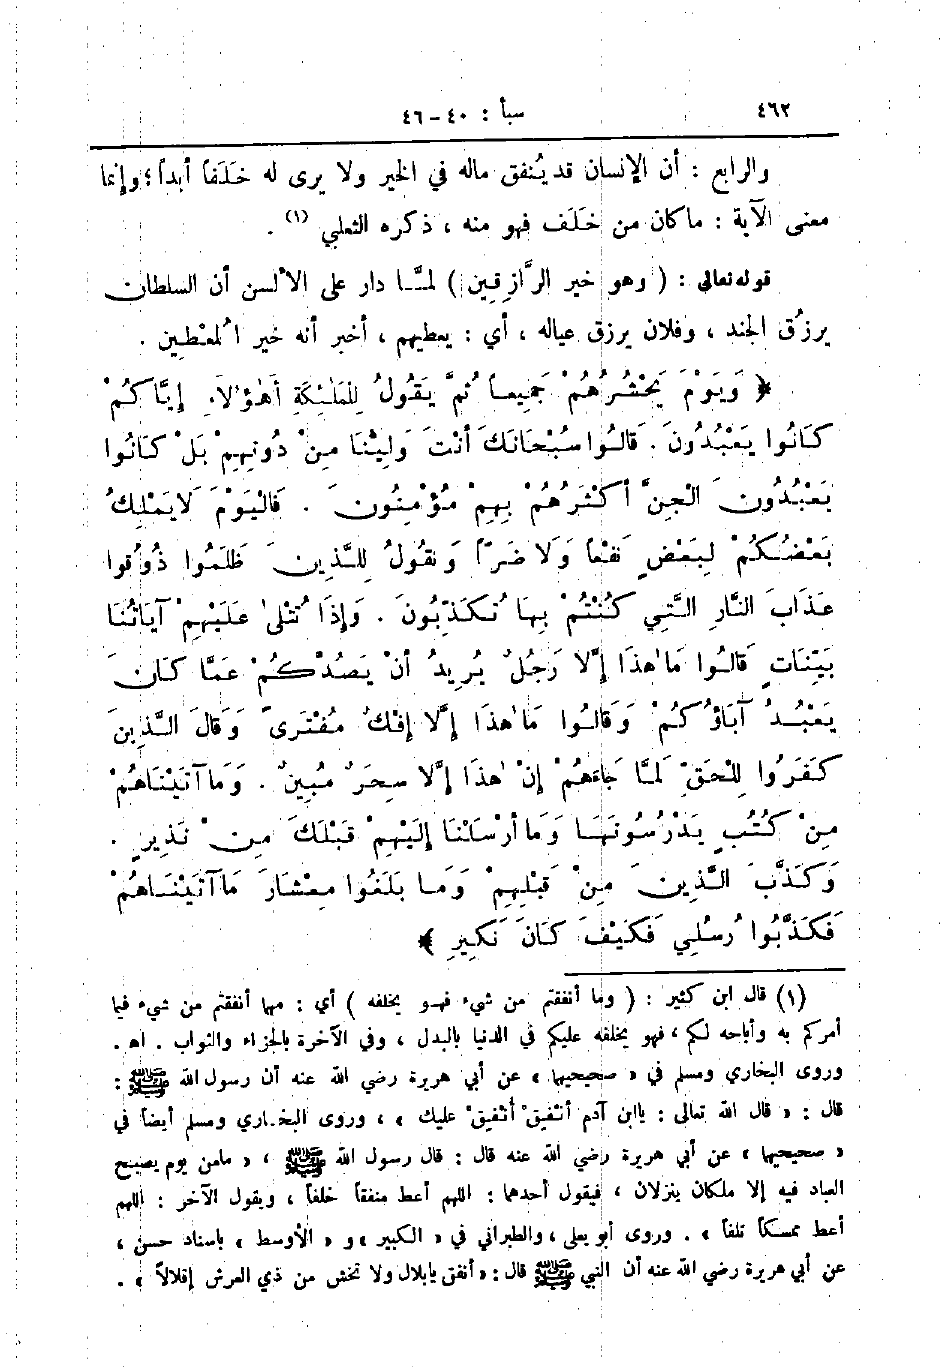 ٤٦٢ سبأ : ٤٠ – ٤٦
والرابع : أن الإنسان قد يُنفق ماله في الخير ولا يرى له خَلَفاً أبداً ؛ وإنما
معنى الآية : ما كان من خَلَف فهو منه ، ذكره الثعلبي (١) .
قوله تعالى : ( وهو خير الرَّازِقِين ) لمَّا دار على الأَلسن أن السلطان
يرزُق الجند ، وفلان يرزق عياله ، أي : يعطيهم ، أخبر أنه خير المُعْطِين .
﴿ وَيَوْمَ يَحْشُرُهُمْ جَمِيعاً ثُمَّ يَقُولُ لِلْمَلٰئِكَةِ أَهٰؤُلَاءِ إِيَّاكُمْ
كَانُوا يَعْبُدُونَ . قَالُوا سُبْحَانَكَ أَنْتَ وَلِيُّنَا مِنْ دُونِهِمْ بَلْ كَانُوا
يَعْبُدُونَ الْجِنَّ أَكْثَرُهُمْ بِهِمْ مُؤْمِنُونَ . فَالْيَوْمَ لَا يَمْلِكُ
بَعْضُكُمْ لِبَعْضٍ نَفْعاً وَلَا ضَرّاً وَنَقُولُ لِلَّذِينَ ظَلَمُوا ذُوقُوا
عَذَابَ النَّارِ الَّتِي كُنْتُمْ بِهَا تُكَذِّبُونَ . وَإِذَا تُتْلَىٰ عَلَيْهِمْ آيَاتُنَا
بَيِّنَاتٍ قَالُوا مَا هٰذَا إِلَّا رَجُلٌ يُرِيدُ أَنْ يَصُدَّكُمْ عَمَّا كَانَ
يَعْبُدُ آبَاؤُكُمْ وَقَالُوا مَا هٰذَا إِلَّا إِفْكٌ مُفْتَرَىً وَقَالَ الَّذِينَ
كَفَرُوا لِلْحَقِّ لَمَّا جَاءَهُمْ إِنْ هٰذَا إِلَّا سِحْرٌ مُبِينٌ . وَمَا آتَيْنَاهُمْ
مِنْ كُتُبٍ يَدْرُسُونَهَا وَمَا أَرْسَلْنَا إِلَيْهِمْ قَبْلَكَ مِنْ نَذِيرٍ .
وَكَذَّبَ الَّذِينَ مِنْ قَبْلِهِمْ وَمَا بَلَغُوا مِعْشَارَ مَا آتَيْنَاهُمْ
فَكَذَّبُوا رُسُلِي فَكَيْفَ كَانَ نَكِيرِ ﴾
(١) قال ابن كثير : ( وما أنفقتم من شيء فهو يخلفه ) أي : مهما أنفقتم من شيء فيما
أمركم به وأباحه لكم ، فهو يخلفه عليكم في الدنيا بالبدل ، وفي الآخرة بالجزاء والثواب . اه .
وروى البخاري ومسلم في « صحيحيهما » عن أبي هريرة رضي الله عنه أن رسول الله ﷺ :
قال : « قال الله تعالى : يا ابن آدم أَنْفِقْ أُنْفِقْ عليك » ، وروى البخاري ومسلم أيضاً في
« صحيحيهما » عن أبي هريرة رضي الله عنه قال : قال رسول الله ﷺ ، « ما من يوم يصبح
العباد فيه إلا ملكان ينزلان ، فيقول أحدهما : اللهم أعط منفقاً خلفاً ، ويقول الآخر : اللهم
أعط ممسكاً تلفاً » . وروى أبو يعلى ، والطبراني في « الكبير » و « الأوسط » بإسناد حسن ،
عن أبي هريرة رضي الله عنه أن النبي ﷺ قال : « أنفق يا بلال ولا تخش من ذي العرش إقلالاً » .